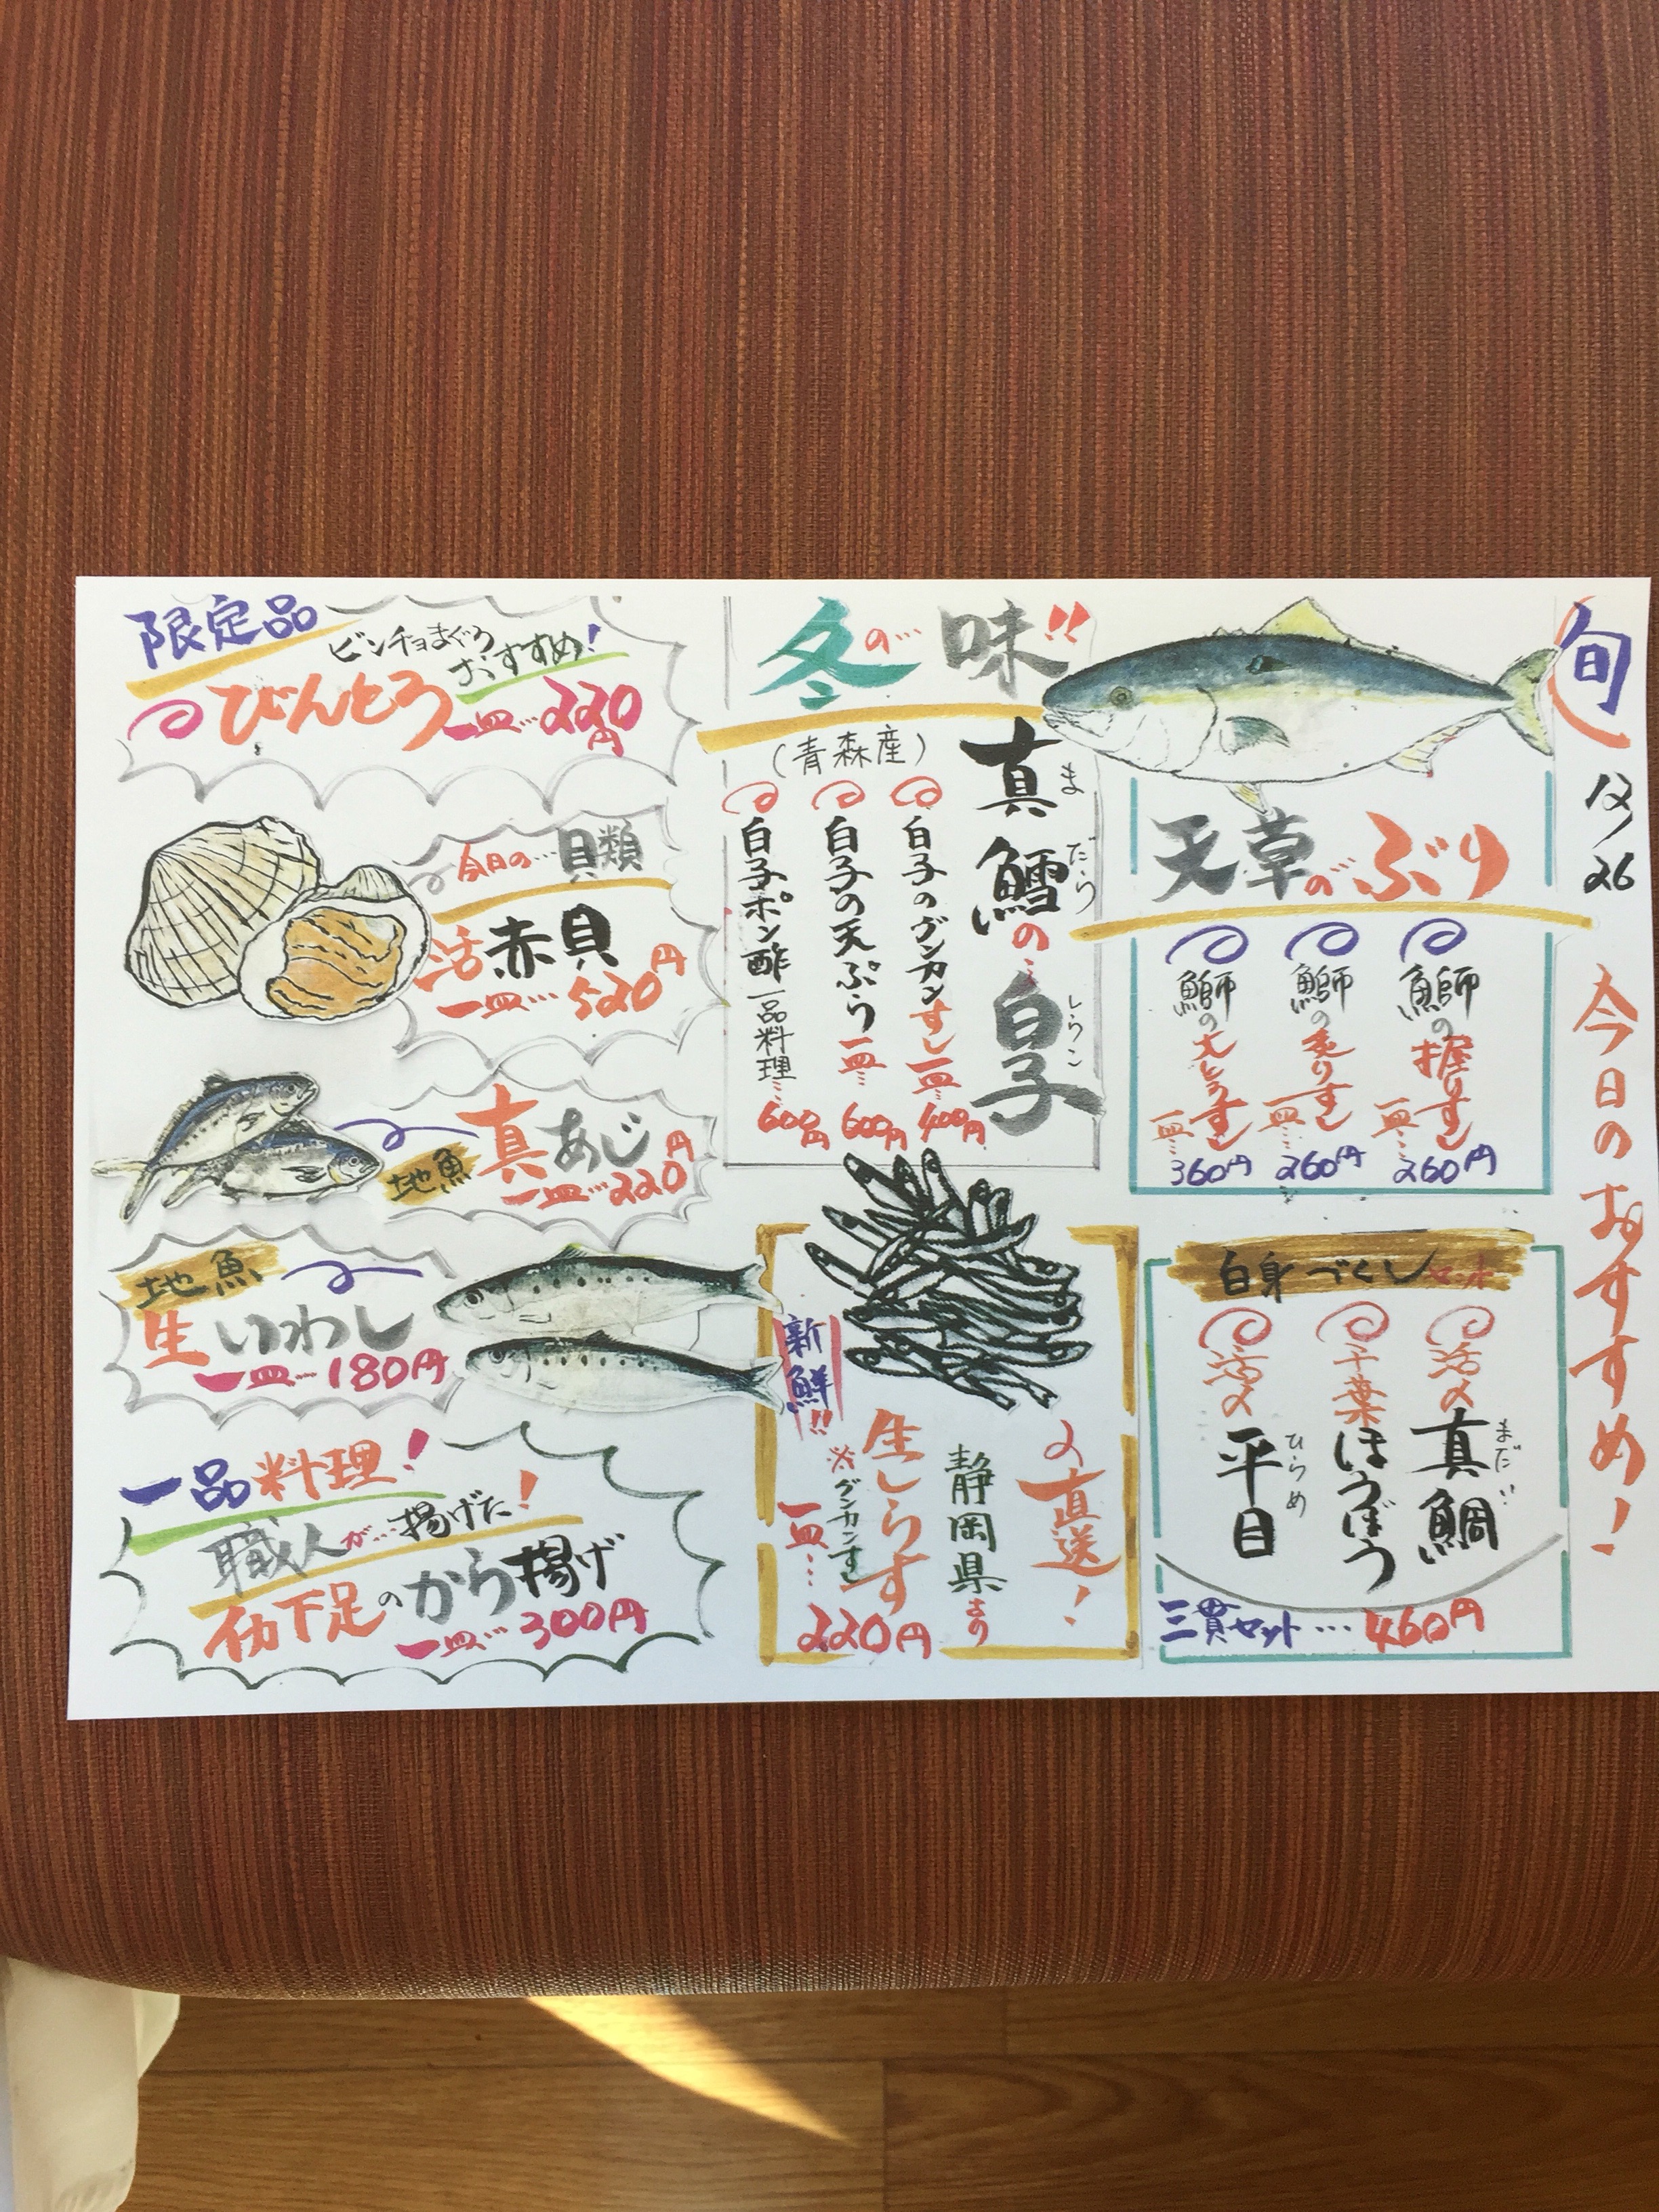 旬
12/26
今日のおすすめ!
天草のぶり
鰤の握りすし
一皿…260円
鰤の炙りすし
一皿…260円
鰤の大とろすし
一皿…360円
白身づくしセット
活〆真鯛
まだい
千葉ほうぼう
活〆平目
ひらめ
三貫セット…460円
冬の…味!!
真鱈の…白子
まだら
しらこ
(青森産)
白子のグンカンすし一皿…400円
白子の天ぷら一皿…600円
白子ポン酢一品料理…600円
直送!
静岡県より
生しらす
※グンカンすし
一皿…220円
新鮮!!
限定品
ビンチョまぐろ
おすすめ!
びんとろ一皿…220円
今日の…貝類
活赤貝
一皿…520円
地魚
真あじ
一皿…220円
地魚
生いわし
一皿…180円
一品料理!
職人が…揚げた!
下足のから揚げ
一皿…300円